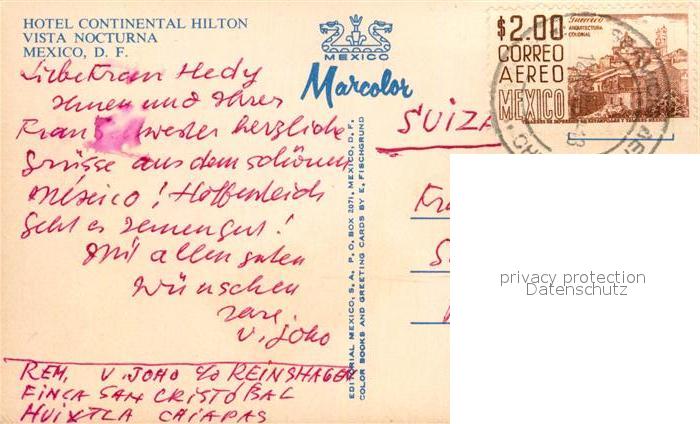 HOTEL CONTINENTAL HILTON
VISTA NOCTURNA
MEXICO, D. F.
Liebe Frau Hedy
Ihnen und Ihrer
Frau Schwester herzliche
Grüsse aus dem schönen
Mexico! Hoffentlich
geht es Ihnen gut!
Mit allen guten
Wünschen
V. Joho
REM. V. JOHO c/o REINSHAGEN
FINCA SAN CRISTOBAL
HUIXTLA CHIAPAS
MEXICO
Marcolor
EDITORIAL MEXICO, S. A. P. O. BOX 2071, MEXICO, D. F.
COLOR BOOKS AND GREETING CARDS BY E. FISCHGRUND
$2.00
Guerrero
ARQUITECTURA
COLONIAL
CORREO
AEREO
MEXICO
SUIZA
privacy protection
Datenschutz